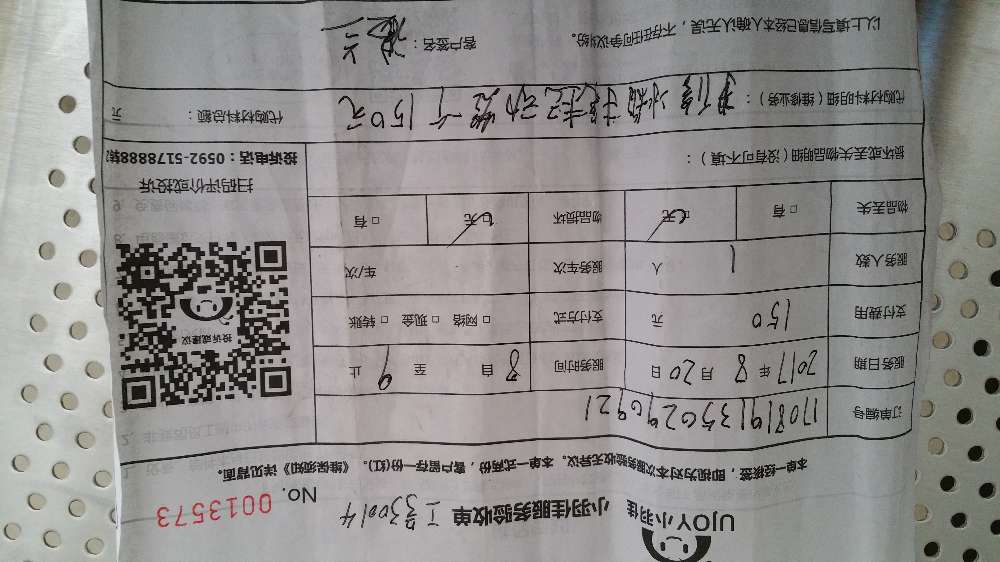 UJOY小羽佳
小羽佳服务验收单 工号30014 No. 0013573
本单一经核签,即视为对本次服务验收无异议。本单一式两份,客户留存一份(红)。《维保须知》详见背面。
订单编号 1708191350290921
服务日期 2017 年 8 月 20 日 服务时间 8 自 至 9 止
支付费用 150 元 支付方式 □ 网络 □ 现金 □ 转账
服务人数 1 人 服务车次 车/次
物品丢失 □ 有 □ 无 物品损坏 □ 无 □ 有
投诉或建议
扫码评价或投诉
投诉电话:0592-5178888转2
损坏或丢失物品明细(没有可不填):
代购材料明细(维修业务): 冰箱 起动器 一个 150元 代购材料总额: 元
以上填写信息已经本人确认无误,不存任何争议纠纷。 客户签名: